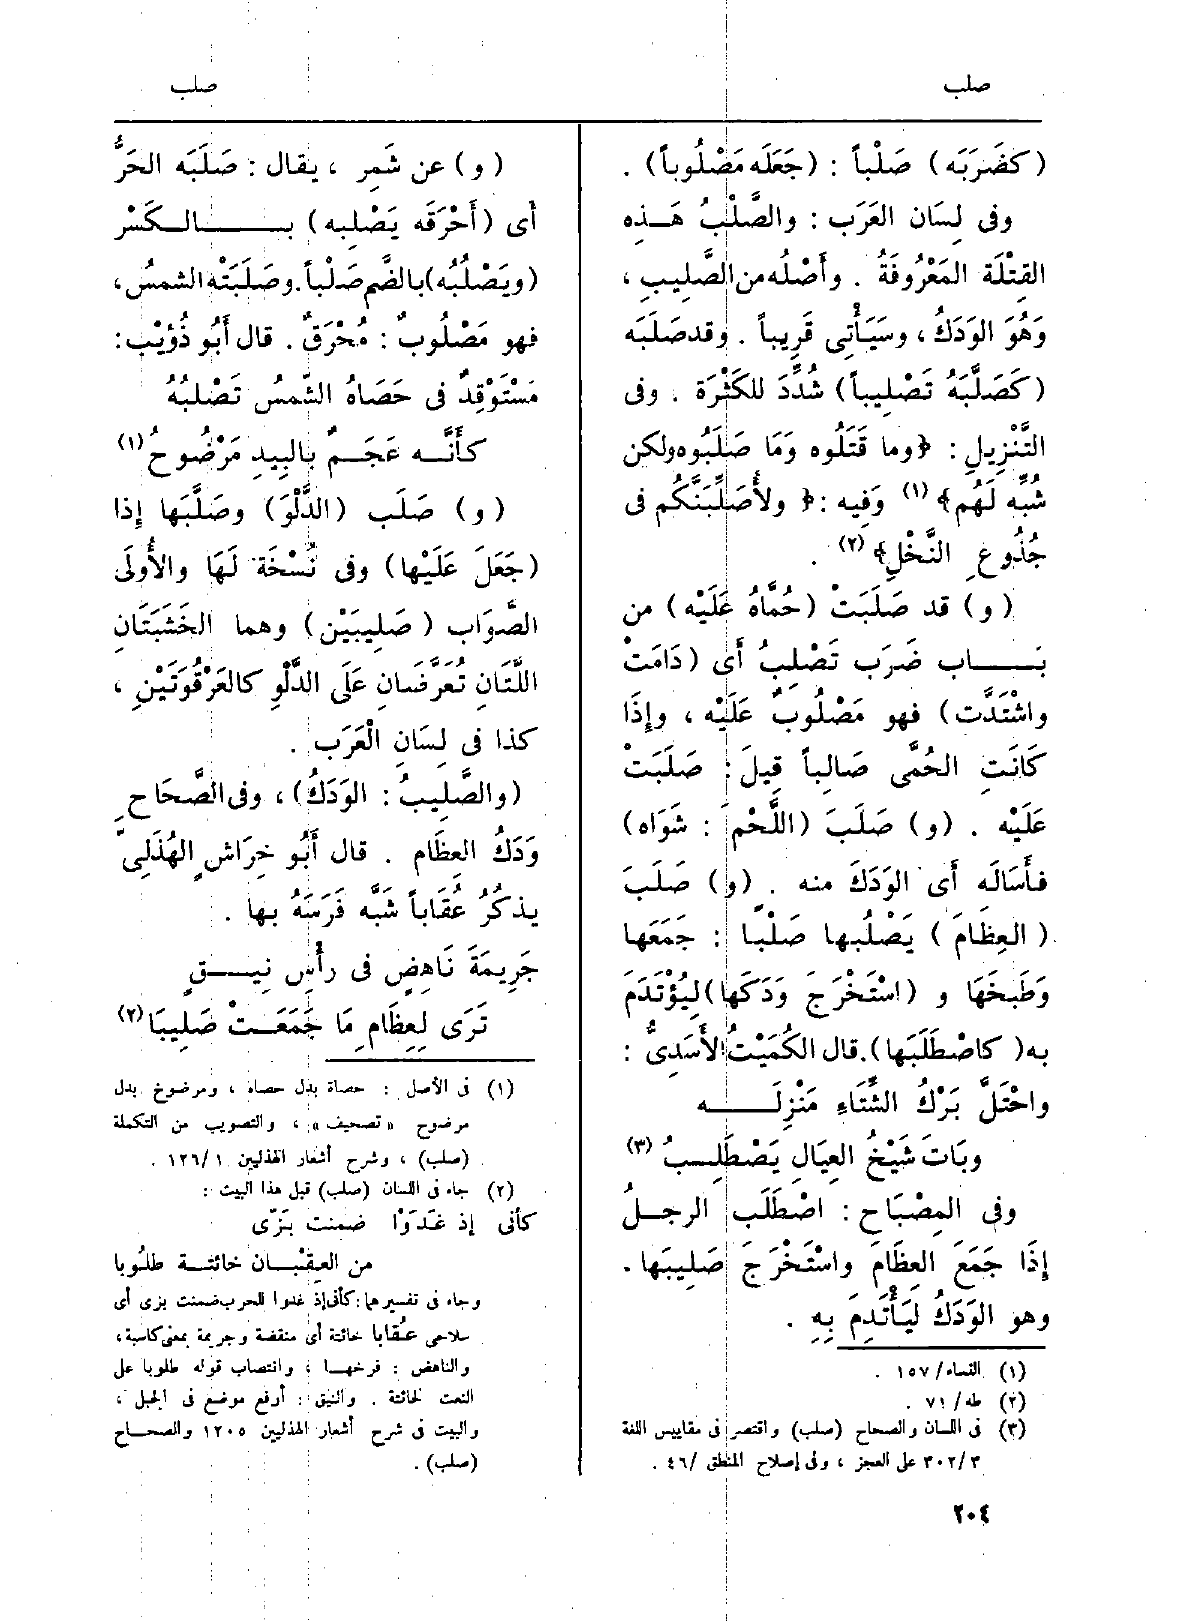 صلب
صلب
(كضَرَبَه) صَلْباً : (جَعَلَه مَصْلُوباً) .
وفى لِسَان العَرَب : والصَّلْبُ هَـذِه
القِتْلَة المَعْرُوفَةُ . وأَصْلُه من الصَّلِيبِ ،
وَهُوَ الوَدَكُ ، وسَيَأْتِى قَرِيباً . وقد صَلَبَه
(كَصَلَّبَهُ تَصْلِيباً) شُدِّدَ للكَثْرَة . وفى
التَّنْزِيلِ : ﴿وما قَتَلُوه وَمَا صَلَبُوه ولكن
شُبِّه لَهُم﴾ (١) وَفِيه : ﴿ ولأُصَلِّبَنَّكُم فى
جُذُوعِ النَّخْلِ﴾ (٢) .
(و) قد صَلَبَتْ (حُمَّاهُ عَلَيْه) من
بَـــاب ضَرَب تَصْلِبُ أَى (دَامَتْ
واشْتَدَّت) فهو مَصْلُوبٌ عَلَيْه ، وإِذَا
كَانَتِ الحُمَّى صَالِباً قِيلَ : صَلَبَتْ
عَلَيْه . (و) صَلَبَ (اللَّحْمَ : شَوَاه)
فأَسَالَه أَى الوَدَكَ منه . (و) صَلَبَ
(العِظَامَ) يَصْلُبها صَلْباً : جَمَعَها
وَطَبخَهَا و (اسْتَخْرَجَ وَدَكَها) لِيُؤْتَدَمَ
به (كاصْطَلَبَها). قال الكُمَيْتُ الأَسَدِىُّ :
واحْتَلَّ بَرْكُ الشِّتَاءِ مَنْزِلَـــه
وبَاتَ شَيْخُ العِيَالِ يَصْطَلِـبُ (٣)
وفى المِصْبَاح : اصْطَلَب الرجـلُ
إِذَا جَمَعَ العِظَامَ واسْتَخْرَجَ صَلِيبَها .
وهو الوَدَكُ لِيَأْتَدِمَ بِهِ .
(١) النساء/ ١٥٧ .
(٢) طه/ ٧١ .
(٣) فى اللسان والصحاح (صلب) واقتصر فى مقاييس اللغة
٣٠٢/٣ على العجز ، وفى إصلاح المنطق /٤٦ .
٢٠٤
(و) عن شَمِر ، يقال : صَلَبَه الحَرُّ
أَى (أَحْرَقَه يَصْلِبه) بـــالـكَسْر
(ويَصْلُبُه) بالضَّم صَلْباً. وصَلَبَتْه الشمسُ ،
فهو مَصْلُوبٌ : مُحْرَقٌ . قال أَبُو ذُؤَيْب :
مَسْتَوْقِدٌ فى حَصَاهُ الشَّمسُ تَصْلبُهُ
كأَنَّـه عَجَـمٌ بالبِيدِ مَرْضُوحُ (١)
(و) صَلَب (الدَّلْوَ) وصَلَّبَها إِذا
(جَعَلَ عَلَيْها) وفى نُسْخَة لَهَا والأُولَى
الصَّوَاب (صَلِيبَيْن) وهما الخَشَبَتَانِ
اللَّتَانِ تُعَرَّضَانِ عَلَى الدَّلْوِ كالعَرْقُوَتَيْنِ ،
كذا فى لِسَانِ الْعَرَب .
(والصَّلِيبُ : الوَدَكُ) ، وفى الصَّحَاحِ
وَدَكُ العِظَام . قال أَبُو خِرَاشٍ الهُذَلِىّ
يذكُرُ عُقَاباً شَبَّه فَرَسَهُ بها .
جَرِيمَةَ نَاهِضٍ فى رأْسِ نِيـــقٍ
تَرَى لِعِظَامِ مَا جَمَعَـتْ صَلِيبَا (٢)
(١) فى الأصل : حصاة بدل حصاه ، ومرضوخ بدل
مرضوح « تصحيف » ، والتصويب من التكملة
(صلب) ، وشرح أشعار الهذليين ١٢٦/١ .
(٢) جاء فى اللسان (صلب) قبل هذا البيت :
كأنى إذ غَدَوْا ضمنت بَزّى
من العِقْبـان خائتـة طلُوبا
وجاء فى تفسيرها : كأنى إذ غدوا للحرب ضمنت بزى أى
سلاحى عُقابا خائتة أى منقضة وجريمة بمعنى كاسبة ،
والناهض : فرخهـا ، وانتصاب قوله طلوبا على
النعت لخائتة . والنيق : أرفع موضع فى الجبل ،
والبيت فى شرح أشعار الهذليين ١٢٠٥ والصحـاح
(صلب) .